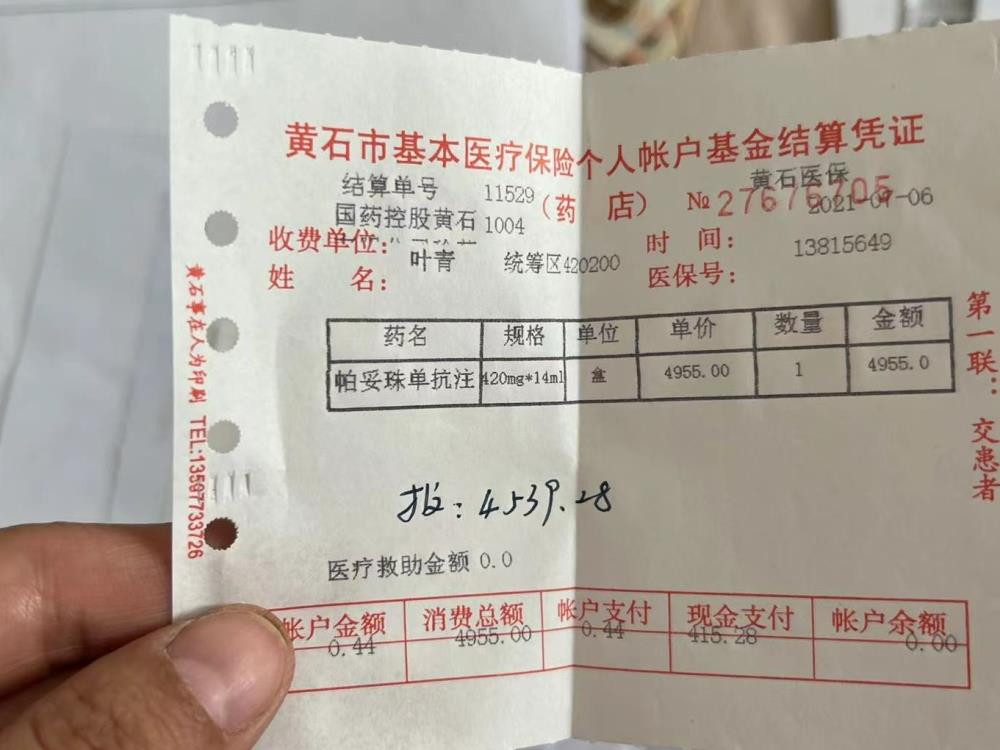 黄石市基本医疗保险个人帐户基金结算凭证
黄石医保
结算单号 11529 (药 店) № 27676705
2021-07-06
国药控股黄石 1004
收费单位: 时 间:
13815649
姓 名: 叶青 统筹区420200 医保号:
药名 规格 单位 单价 数量 金额
帕妥珠单抗注 420mg*14ml 盒 4955.00 1 4955.0
报: 4539.28
医疗救助金额 0.0
帐户金额 消费总额 帐户支付 现金支付 帐户余额
0.44 4955.00 0.44 415.28 0.00
第一联: 交患者
黄石事在人为印刷 TEL:13597733726